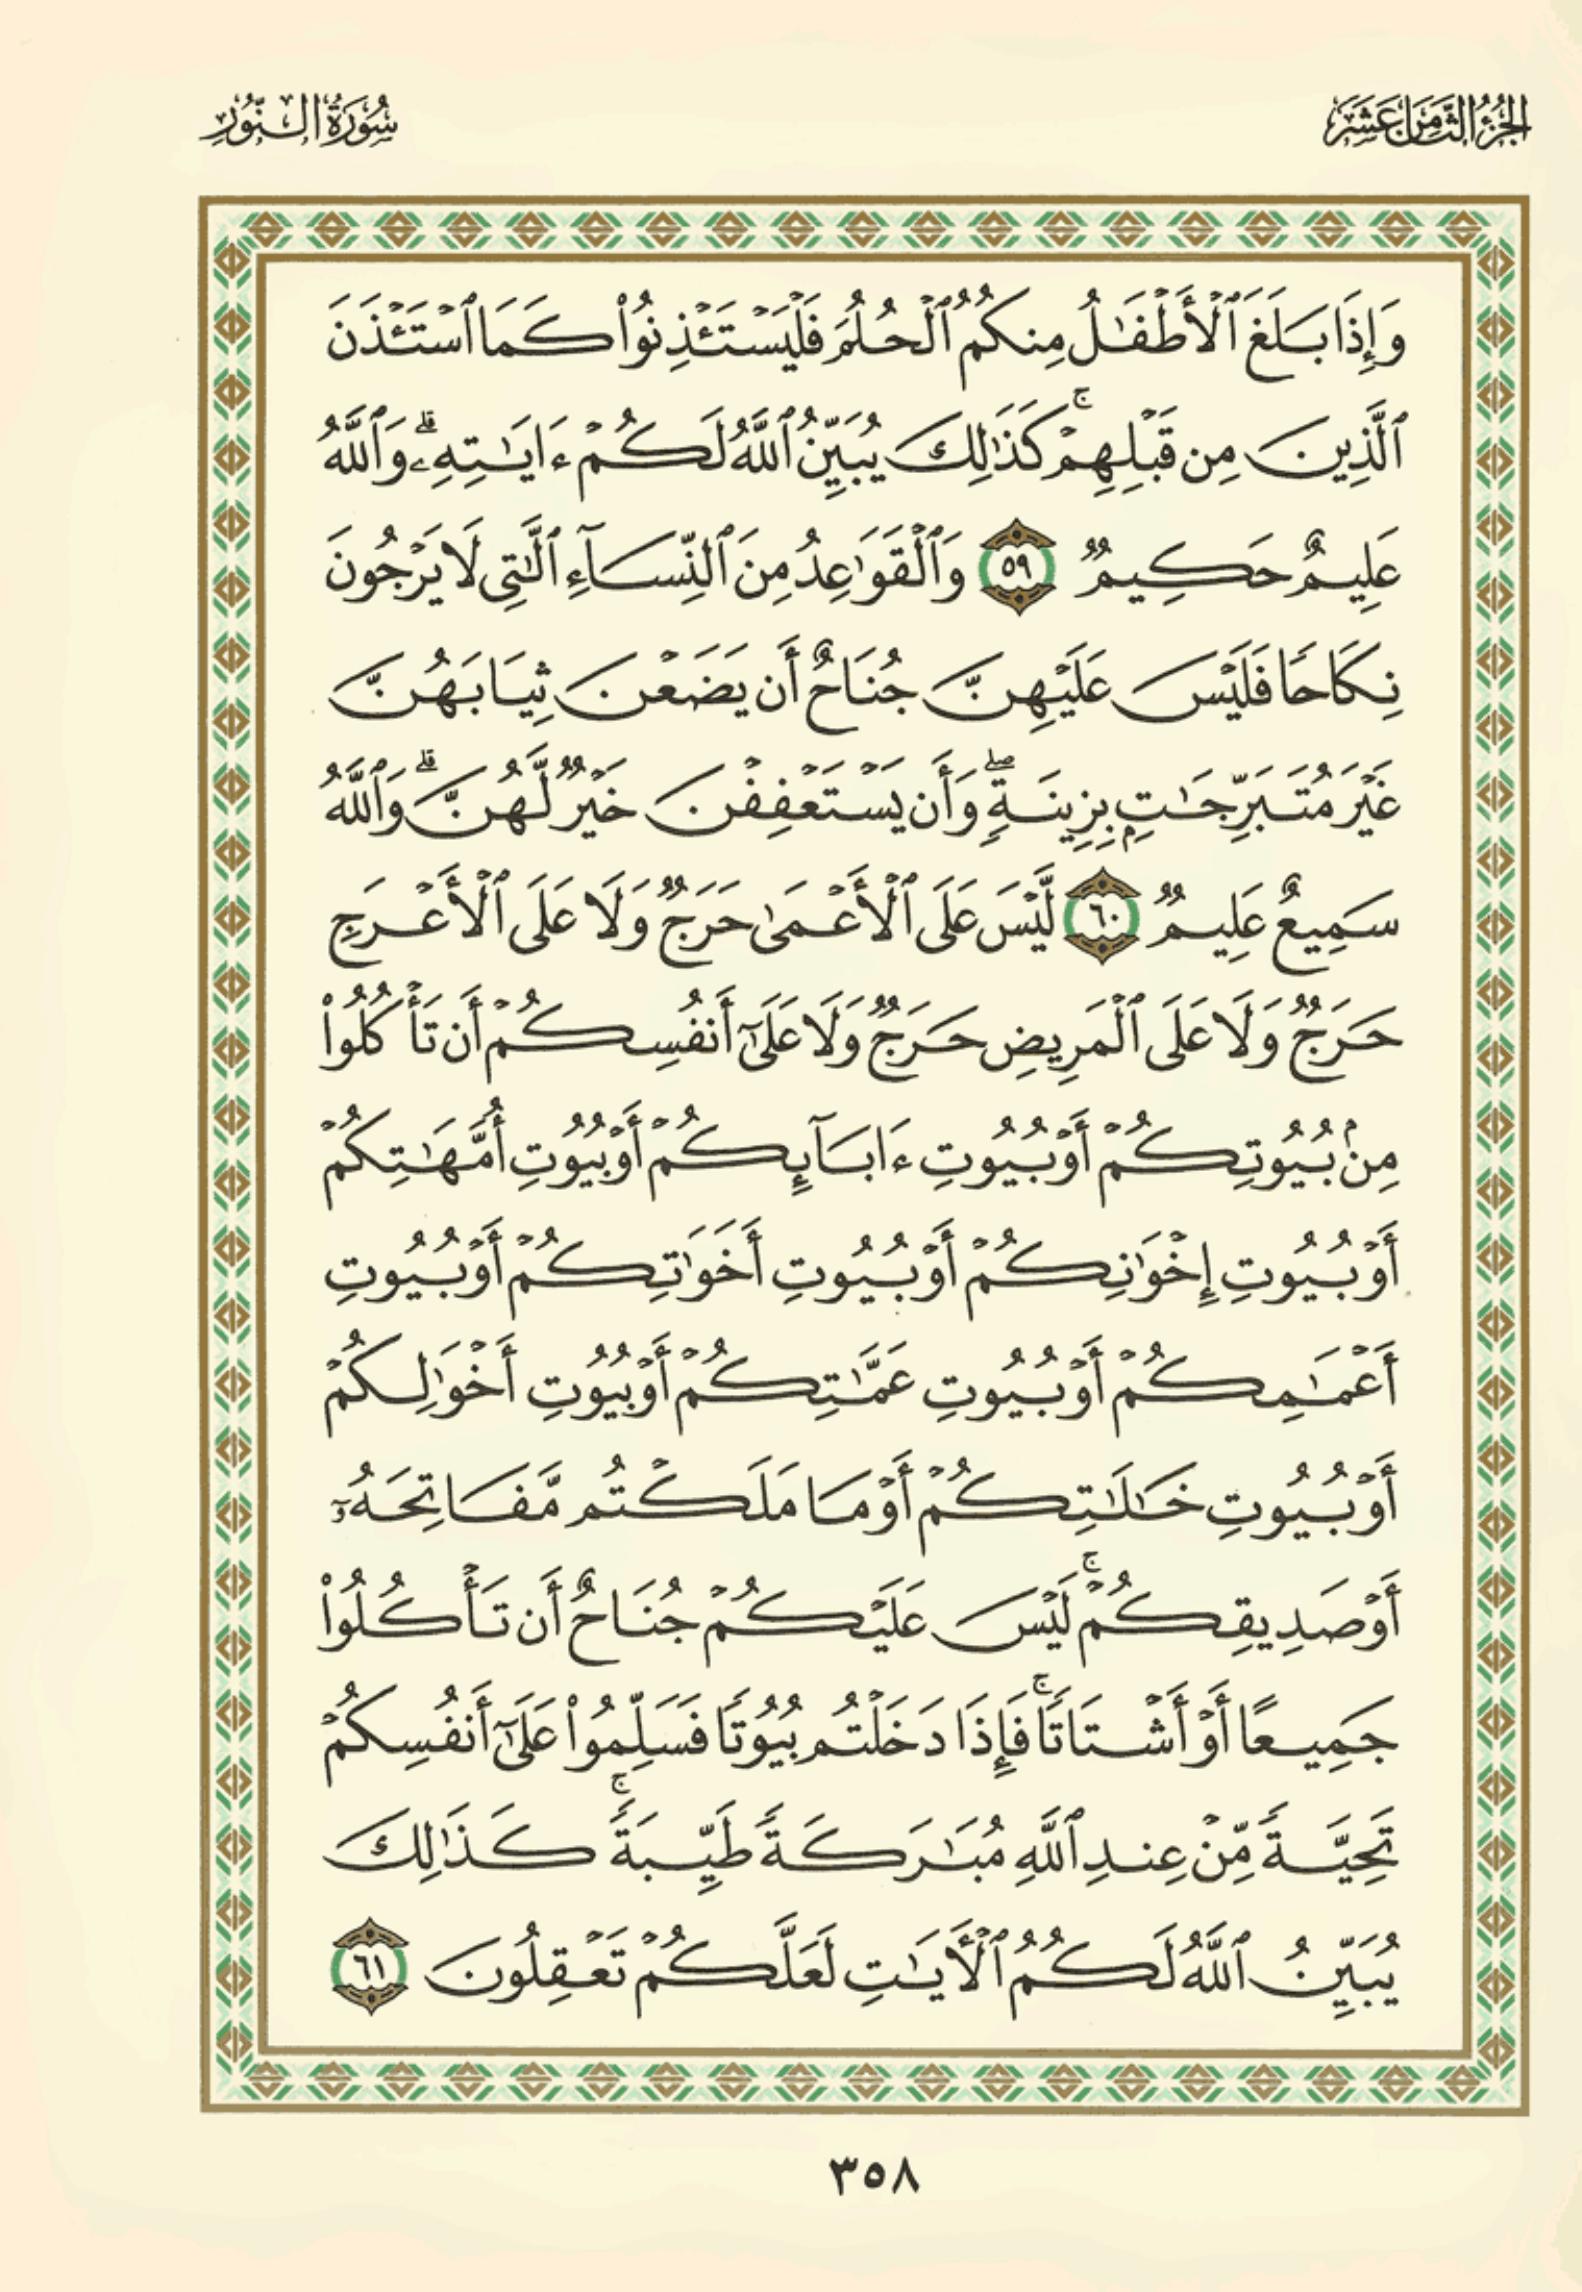 الجزء الثامن عشر
سورة النور
وَإِذَا بَلَغَ ٱلْأَطْفَـٰلُ مِنكُمُ ٱلْحُلُمَ فَلْيَسْتَـْٔذِنُوا۟ كَمَا ٱسْتَـْٔذَنَ
ٱلَّذِينَ مِن قَبْلِهِمْ ۚ كَذَٰلِكَ يُبَيِّنُ ٱللَّهُ لَكُمْ ءَايَـٰتِهِۦ ۗ وَٱللَّهُ
عَلِيمٌ حَكِيمٌ ٥٩ وَٱلْقَوَٰعِدُ مِنَ ٱلنِّسَآءِ ٱلَّـٰتِى لَا يَرْجُونَ
نِكَاحًا فَلَيْسَ عَلَيْهِنَّ جُنَاحٌ أَن يَضَعْنَ ثِيَابَهُنَّ
غَيْرَ مُتَبَرِّجَـٰتٍۭ بِزِينَةٍ ۖ وَأَن يَسْتَعْفِفْنَ خَيْرٌ لَّهُنَّ ۗ وَٱللَّهُ
سَمِيعٌ عَلِيمٌ ٦٠ لَّيْسَ عَلَى ٱلْأَعْمَىٰ حَرَجٌ وَلَا عَلَى ٱلْأَعْرَجِ
حَرَجٌ وَلَا عَلَى ٱلْمَرِيضِ حَرَجٌ وَلَا عَلَىٰٓ أَنفُسِكُمْ أَن تَأْكُلُوا۟
مِنۢ بُيُوتِكُمْ أَوْ بُيُوتِ ءَابَآئِكُمْ أَوْ بُيُوتِ أُمَّهَـٰتِكُمْ
أَوْ بُيُوتِ إِخْوَٰنِكُمْ أَوْ بُيُوتِ أَخَوَٰتِكُمْ أَوْ بُيُوتِ
أَعْمَـٰمِكُمْ أَوْ بُيُوتِ عَمَّـٰتِكُمْ أَوْ بُيُوتِ أَخْوَٰلِكُمْ
أَوْ بُيُوتِ خَـٰلَـٰتِكُمْ أَوْ مَا مَلَكْتُم مَّفَاتِحَهُۥٓ
أَوْ صَدِيقِكُمْ ۚ لَيْسَ عَلَيْكُمْ جُنَاحٌ أَن تَأْكُلُوا۟
جَمِيعًا أَوْ أَشْتَاتًا ۚ فَإِذَا دَخَلْتُم بُيُوتًا فَسَلِّمُوا۟ عَلَىٰٓ أَنفُسِكُمْ
تَحِيَّةً مِّنْ عِندِ ٱللَّهِ مُبَـٰرَكَةً طَيِّبَةً ۚ كَذَٰلِكَ
يُبَيِّنُ ٱللَّهُ لَكُمُ ٱلْأَيَـٰتِ لَعَلَّكُمْ تَعْقِلُونَ ٦١
٣٥٨